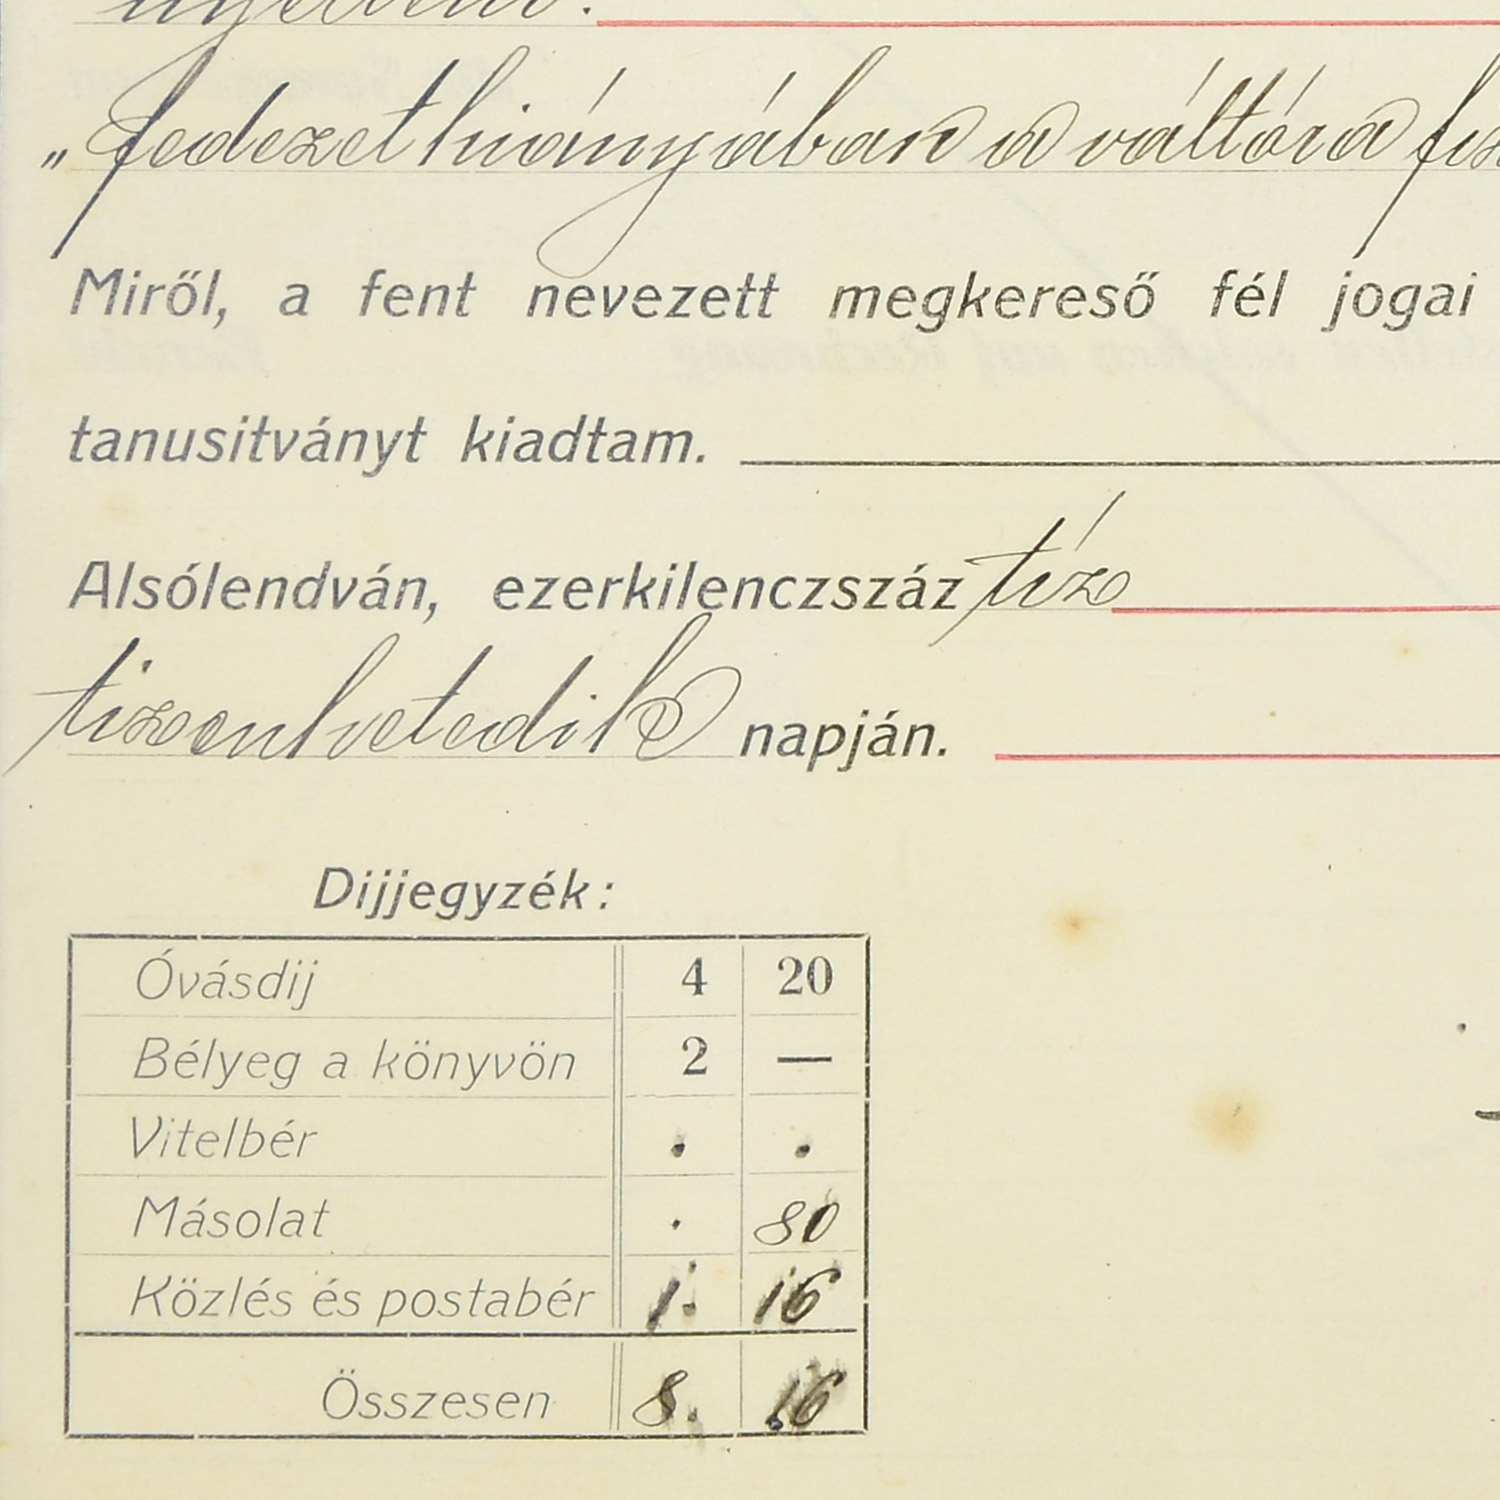 „fedezet hiányában a váltóra
Miről, a fent nevezett megkereső fél jogai
tanusitványt kiadtam.
Alsólendván, ezerkilenczszáz tíz
tizenhetedik napján.
Dijjegyzék:
Óvásdij 4 20
Bélyeg a könyvön 2 —
Vitelbér . .
Másolat . 80
Közlés és postabér 1. 16
Összesen 8. 16